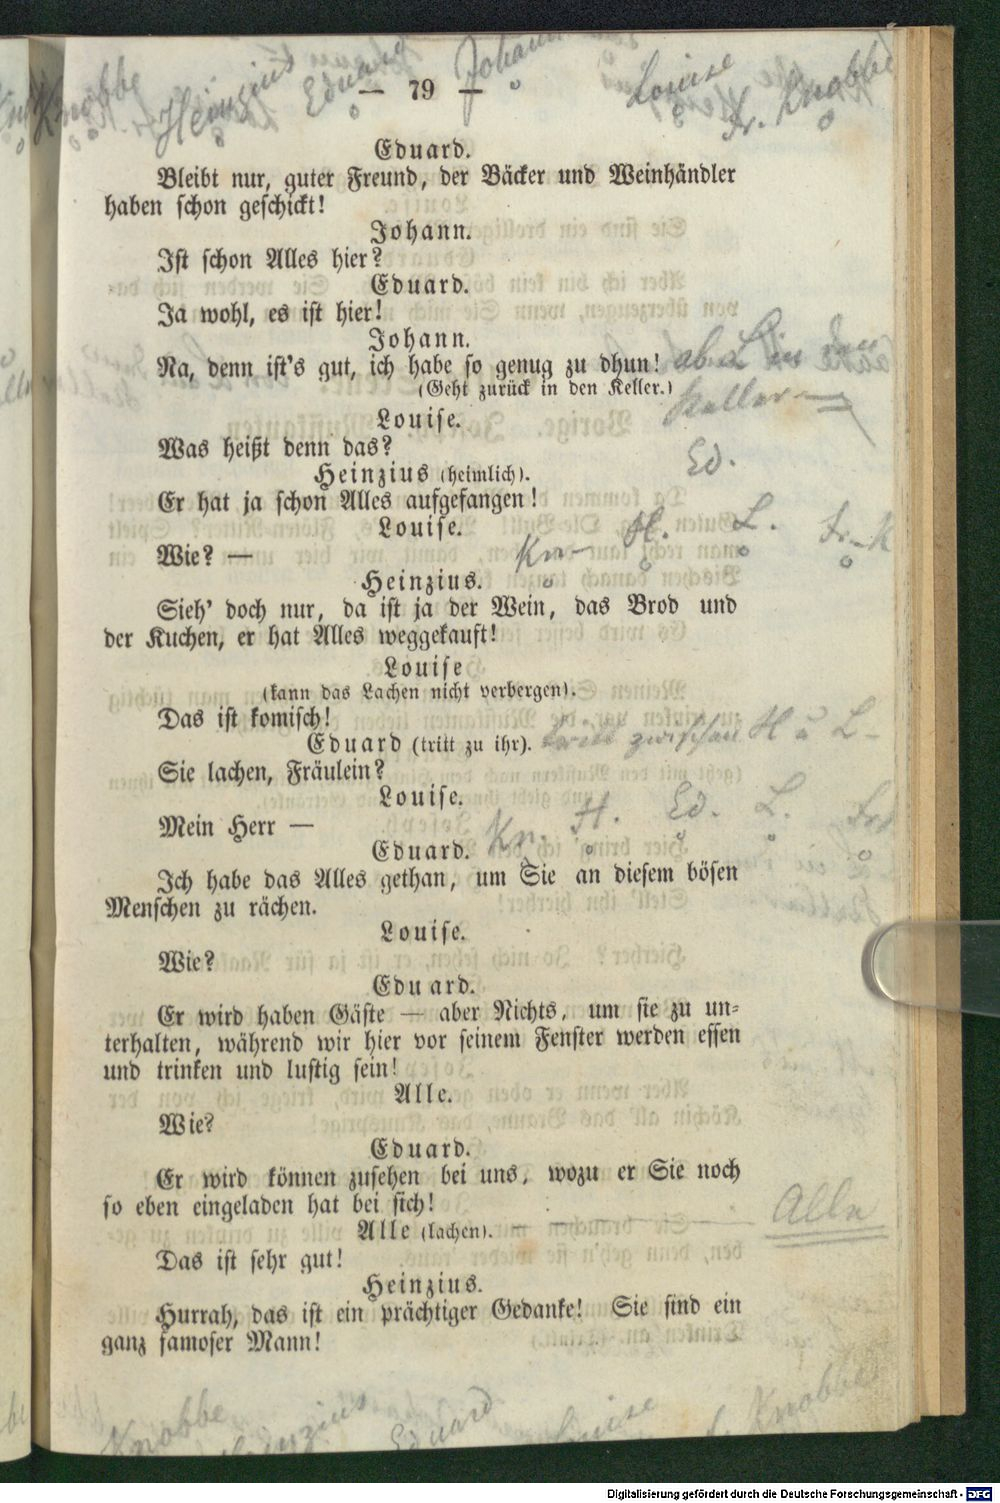 Knobbe Heinzius Eduard Johann Louise Fr. Knobbe
— 79 —
Eduard.
Bleibt nur, guter Freund, der Bäcker und Weinhändler
haben schon geschickt!
Johann.
Ist schon Alles hier?
Eduard.
Ja wohl, es ist hier!
Johann.
Na, denn ist's gut, ich habe so genug zu dhun! ab L in den
(Geht zurück in den Keller.) Keller
Louise.
Was heißt denn das?
Ed.
Heinzius (heimlich).
Er hat ja schon Alles aufgefangen!
Louise.
Kn H. L. Fr. K
Wie? —
Heinzius.
Sieh' doch nur, da ist ja der Wein, das Brod und
der Kuchen, er hat Alles weggekauft!
Louise
(kann das Lachen nicht verbergen).
Das ist komisch!
Eduard (tritt zu ihr). tritt zwischen H u L
Sie lachen, Fräulein?
Louise.
Mein Herr —
Kn. H. Ed. L. Fr
Eduard.
Ich habe das Alles gethan, um Sie an diesem bösen
Menschen zu rächen.
Louise.
Wie?
Eduard.
Er wird haben Gäste — aber Nichts, um sie zu un-
terhalten, während wir hier vor seinem Fenster werden essen
und trinken und lustig sein!
Alle.
Wie?
Eduard.
Er wird können zusehen bei uns, wozu er Sie noch
so eben eingeladen hat bei sich!
Alle
Alle (lachen).
Das ist sehr gut!
Heinzius.
Hurrah, das ist ein prächtiger Gedanke! Sie sind ein
ganz famoser Mann!
Knobbe Heinzius Eduard Louise Knobbe
Digitalisierung gefördert durch die Deutsche Forschungsgemeinschaft - DFG